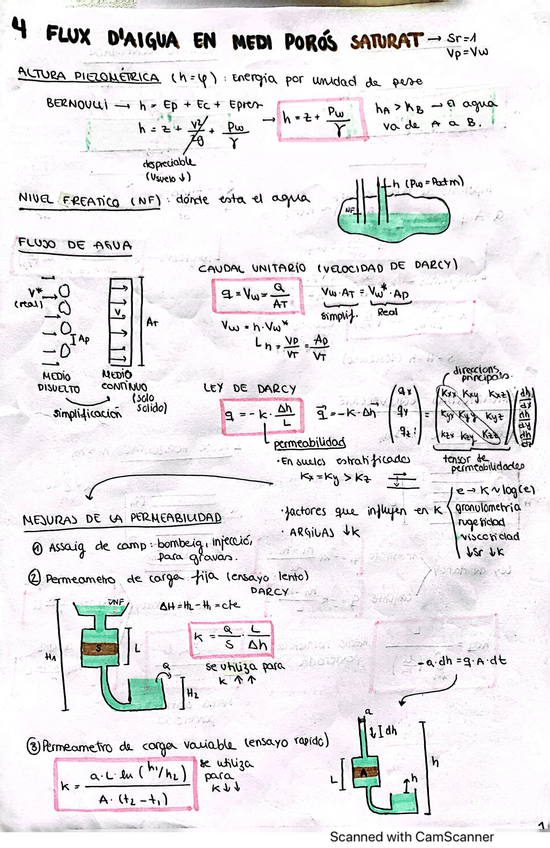 4 FLUX D'AIGUA EN MEDI PORÓS SATURAT → Sr=1
Vp=Vw
ALTURA PIEZOMÉTRICA (h=φ) : Energía por unidad de peso
BERNOULLI → h = Ep + Ec + Epres
h = z + v²/2g + Pw/γ → h = z + Pw/γ
hA > hB → el agua
va de A a B.
despreciable
(Vsuelo ↓)
NIVEL FREATICO (NF) : dónde esta el agua
h (Pw = Patm)
NF
FLUJO DE AGUA
V*
(real)
Ap
V
AT
MEDIO
DISUELTO
MEDIO
CONTINUO
(solo
solido)
simplificación
CAUDAL UNITARIO (VELOCIDAD DE DARCY)
q = Vw = Q/AT
Vw·AT = Vw*·Ap
simplif. Real
Vw = n·Vw*
n = Vp/VT = Ap/VT
LEY DE DARCY
q = -k · Δh/L
q = -K·Δh
(qx qy qz) = (Kxx Kxy Kxz Kyx Kyy Kyz Kzx Kzy Kzz) (dh/dx dh/dy dh/dz)
direccions
principals
tensor de
permeabilidades
permeabilidad
· En suelos estratificados
Kx = Ky > Kz
· factores que influyen en K
e → K ~ log(e)
granulometria
rugosidad
viscosidad
↓Sr ↓K
· ARGILAS ↓k
MESURAS DE LA PERMEABILIDAD
① Assaig de camp : bombeig, injecció,
para gravas.
② Permeametro de carga fija (ensayo lento)
DARCY
NF
ΔH = H2 - H1 = cte
H1
S
L
Q
H2
k = Q/S · L/Δh
se utiliza para
k ↑↑
-a·dh = q·A·dt
③ Permeametro de carga variable (ensayo rapido)
k = a·L·ln(h1/h2) / A·(t2-t1)
se utiliza
para
k ↓↓
a
dh
L
A
h
h
1
Scanned with CamScanner